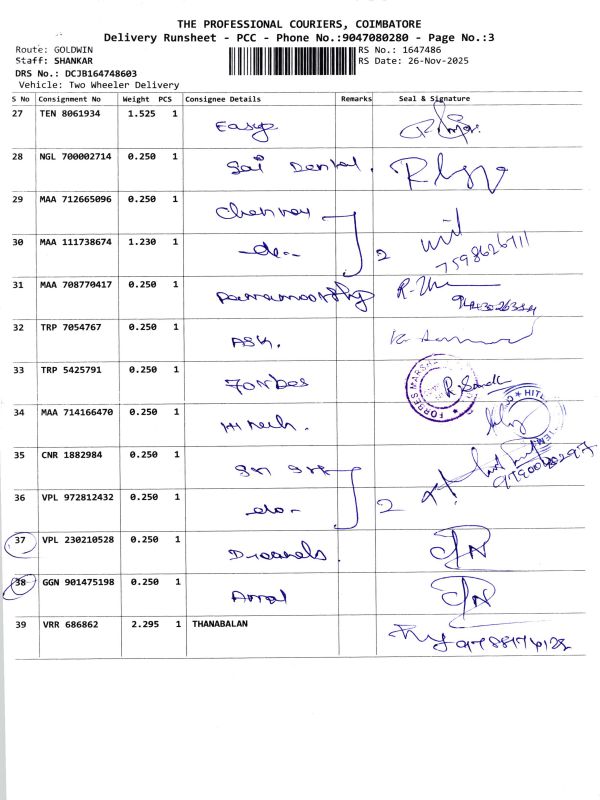 THE PROFESSIONAL COURIERS, COIMBATORE
Delivery Runsheet - PCC - Phone No.:9047080280 - Page No.:3
Route: GOLDWIN RS No.: 1647486
Staff: SHANKAR RS Date: 26-Nov-2025
DRS No.: DCJB164748603
Vehicle: Two Wheeler Delivery
S No Consignment No Weight PCS Consignee Details Remarks Seal & Signature
27 TEN 8061934 1.525 1 Easyo
28 NGL 700002714 0.250 1 Sai Dental.
29 MAA 712665096 0.250 1
30 MAA 111738674 1.230 1 -do- 2 7598626711
31 MAA 708770417 0.250 1 Paramoorthy
32 TRP 7054767 0.250 1 ASK.
33 TRP 5425791 0.250 1 Forbes FORBES
34 MAA 714166470 0.250 1 Hi tech.
35 CNR 1882984 0.250 1
36 VPL 972812432 0.250 1 -do- 2
37 VPL 230210528 0.250 1
38 GGN 901475198 0.250 1
39 VRR 686862 2.295 1 THANABALAN